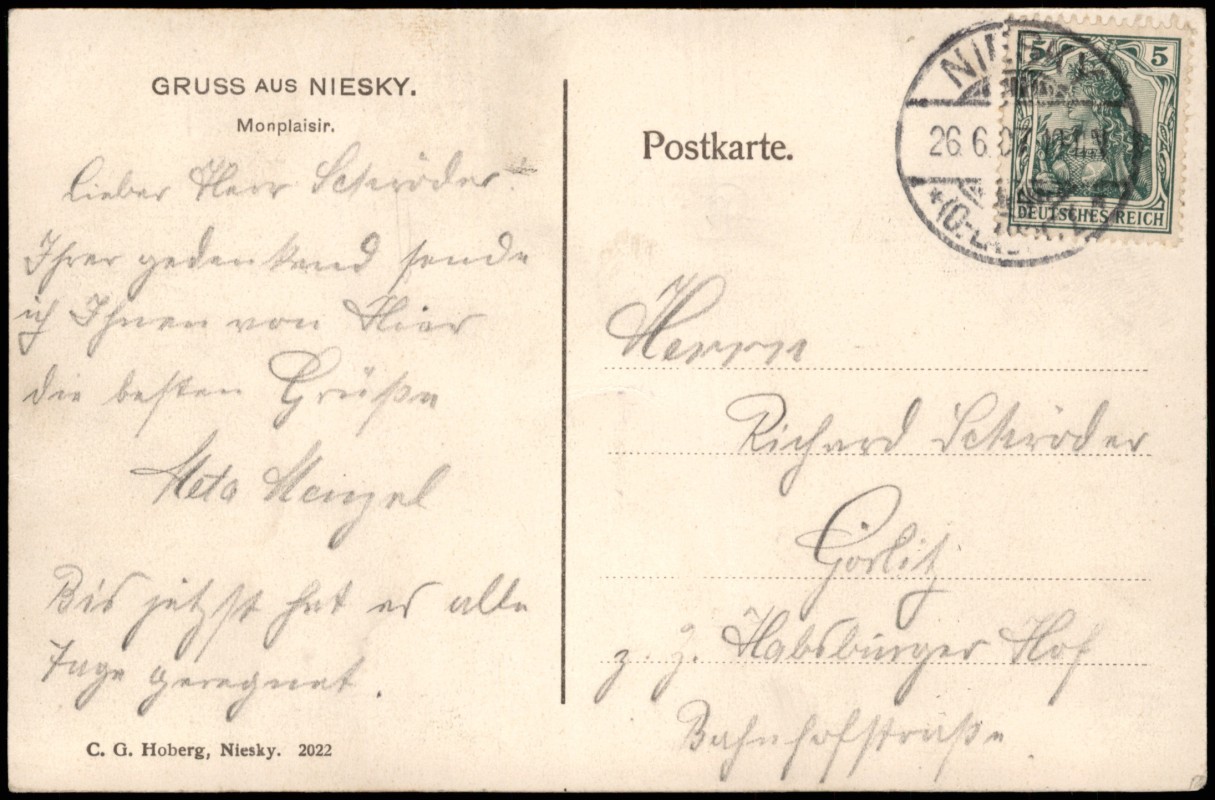 GRUSS AUS NIESKY.
Monplaisir.
Lieber Herr Schröder
Ihrer gedenkend sende
ich Ihnen von Hier
die besten Grüße
Meta Menzel
Bis jetzt hat es alle
Tage geregnet.
C. G. Hoberg, Niesky. 2022
Postkarte.
NIESKY
26.6.07.
*(O.-L
5 5
DEUTSCHES REICH
Herrn
Richard Schröder
Görlitz
z. Z. Habsburger Hof
Bahnhofstraße